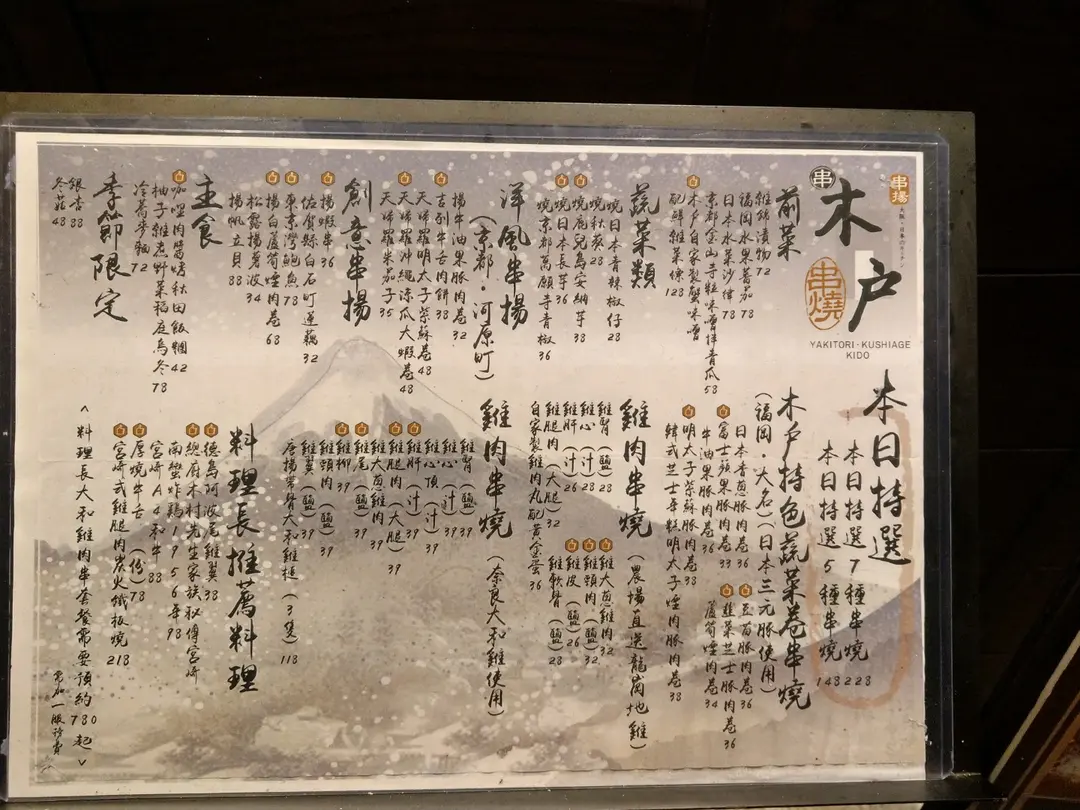 串揚
串
木戶
串燒
YAKITORI·KUSHIAGE
KIDO
前菜
雜錦漬物 72
福岡水果蕃茄 78
日本水菜沙律 78
京都金山寺粒味噌拌青瓜 58
木戶自家製蟹味噌
配鮮雜菜條 128
蔬菜類
燒日本青辣椒仔 28
燒秋葵 28
燒鹿兒島安納芋 38
燒日本長芋 36
燒京都萬願寺青椒 36
洋風串揚
(京都·河原町)
揚牛油果豚肉卷 32
吉列牛舌肉餅 38
天婦羅明太子紫蘇卷 48
天婦羅沖繩涼瓜大蝦卷 48
天婦羅朱茄子 35
創意串揚
揚蝦串 36
佐賀縣白石町蓮藕 32
東京灣鮑魚 78
揚白蘆筍煙肉卷 68
松露揚菠菠 34
揚帆立貝 38
主食
咖哩肉醬烤秋田飯糰 42
柚子雞煮野菜稻庭烏冬 78
冷蕎麥麵 72
季節限定
銀杏 38
冬菇 48
本日特選
本日特選7種串燒 228
本日特選5種串燒 148
木戶特色蔬菜卷串燒
(福岡·大名)(日本三元豚使用)
日本香蔥豚肉卷 36
富士蘋果豚肉卷 38
牛油果豚肉卷 36
明太子紫蘇豚肉卷 38
韓式芝士年糕明太子煙肉豚肉卷 38
豆苗豚肉卷 36
韮菜芝士豚肉卷 36
蘆筍煙肉卷 34
雞肉串燒
(農場直送龍崗地雞)
雞腎(鹽) 28
雞心(汁) 28
雞肝(汁) 26
雞腿肉(大腿) 32
自家製雞肉丸配黃金蛋 36
雞大蔥雞肉 32
雞頸肉(鹽) 32
雞皮(鹽) 26
雞軟骨(鹽) 28
雞肉串燒
(奈良大和雞使用)
雞腎(鹽) 39
雞心(汁) 39
雞心頂(汁) 39
雞肝(汁) 39
雞腿肉(大腿) 39
雞大蔥雞肉 39
雞尾(鹽) 39
雞柳 39
雞頸肉(鹽) 39
雞翼(鹽) 39
唐揚帶骨大和雞槌(3隻) 118
料理長推薦料理
德島阿波尾雞翼 38
總廚木村先生家族秘傳宮崎
南蠻炸鶏1956年 98
宮崎A4和牛 88
厚燒牛舌(份) 78
宮崎式雞腿肉炭火鐵板燒 218
<料理長大和雞肉串套餐需要預約 780起>
另加一服務費